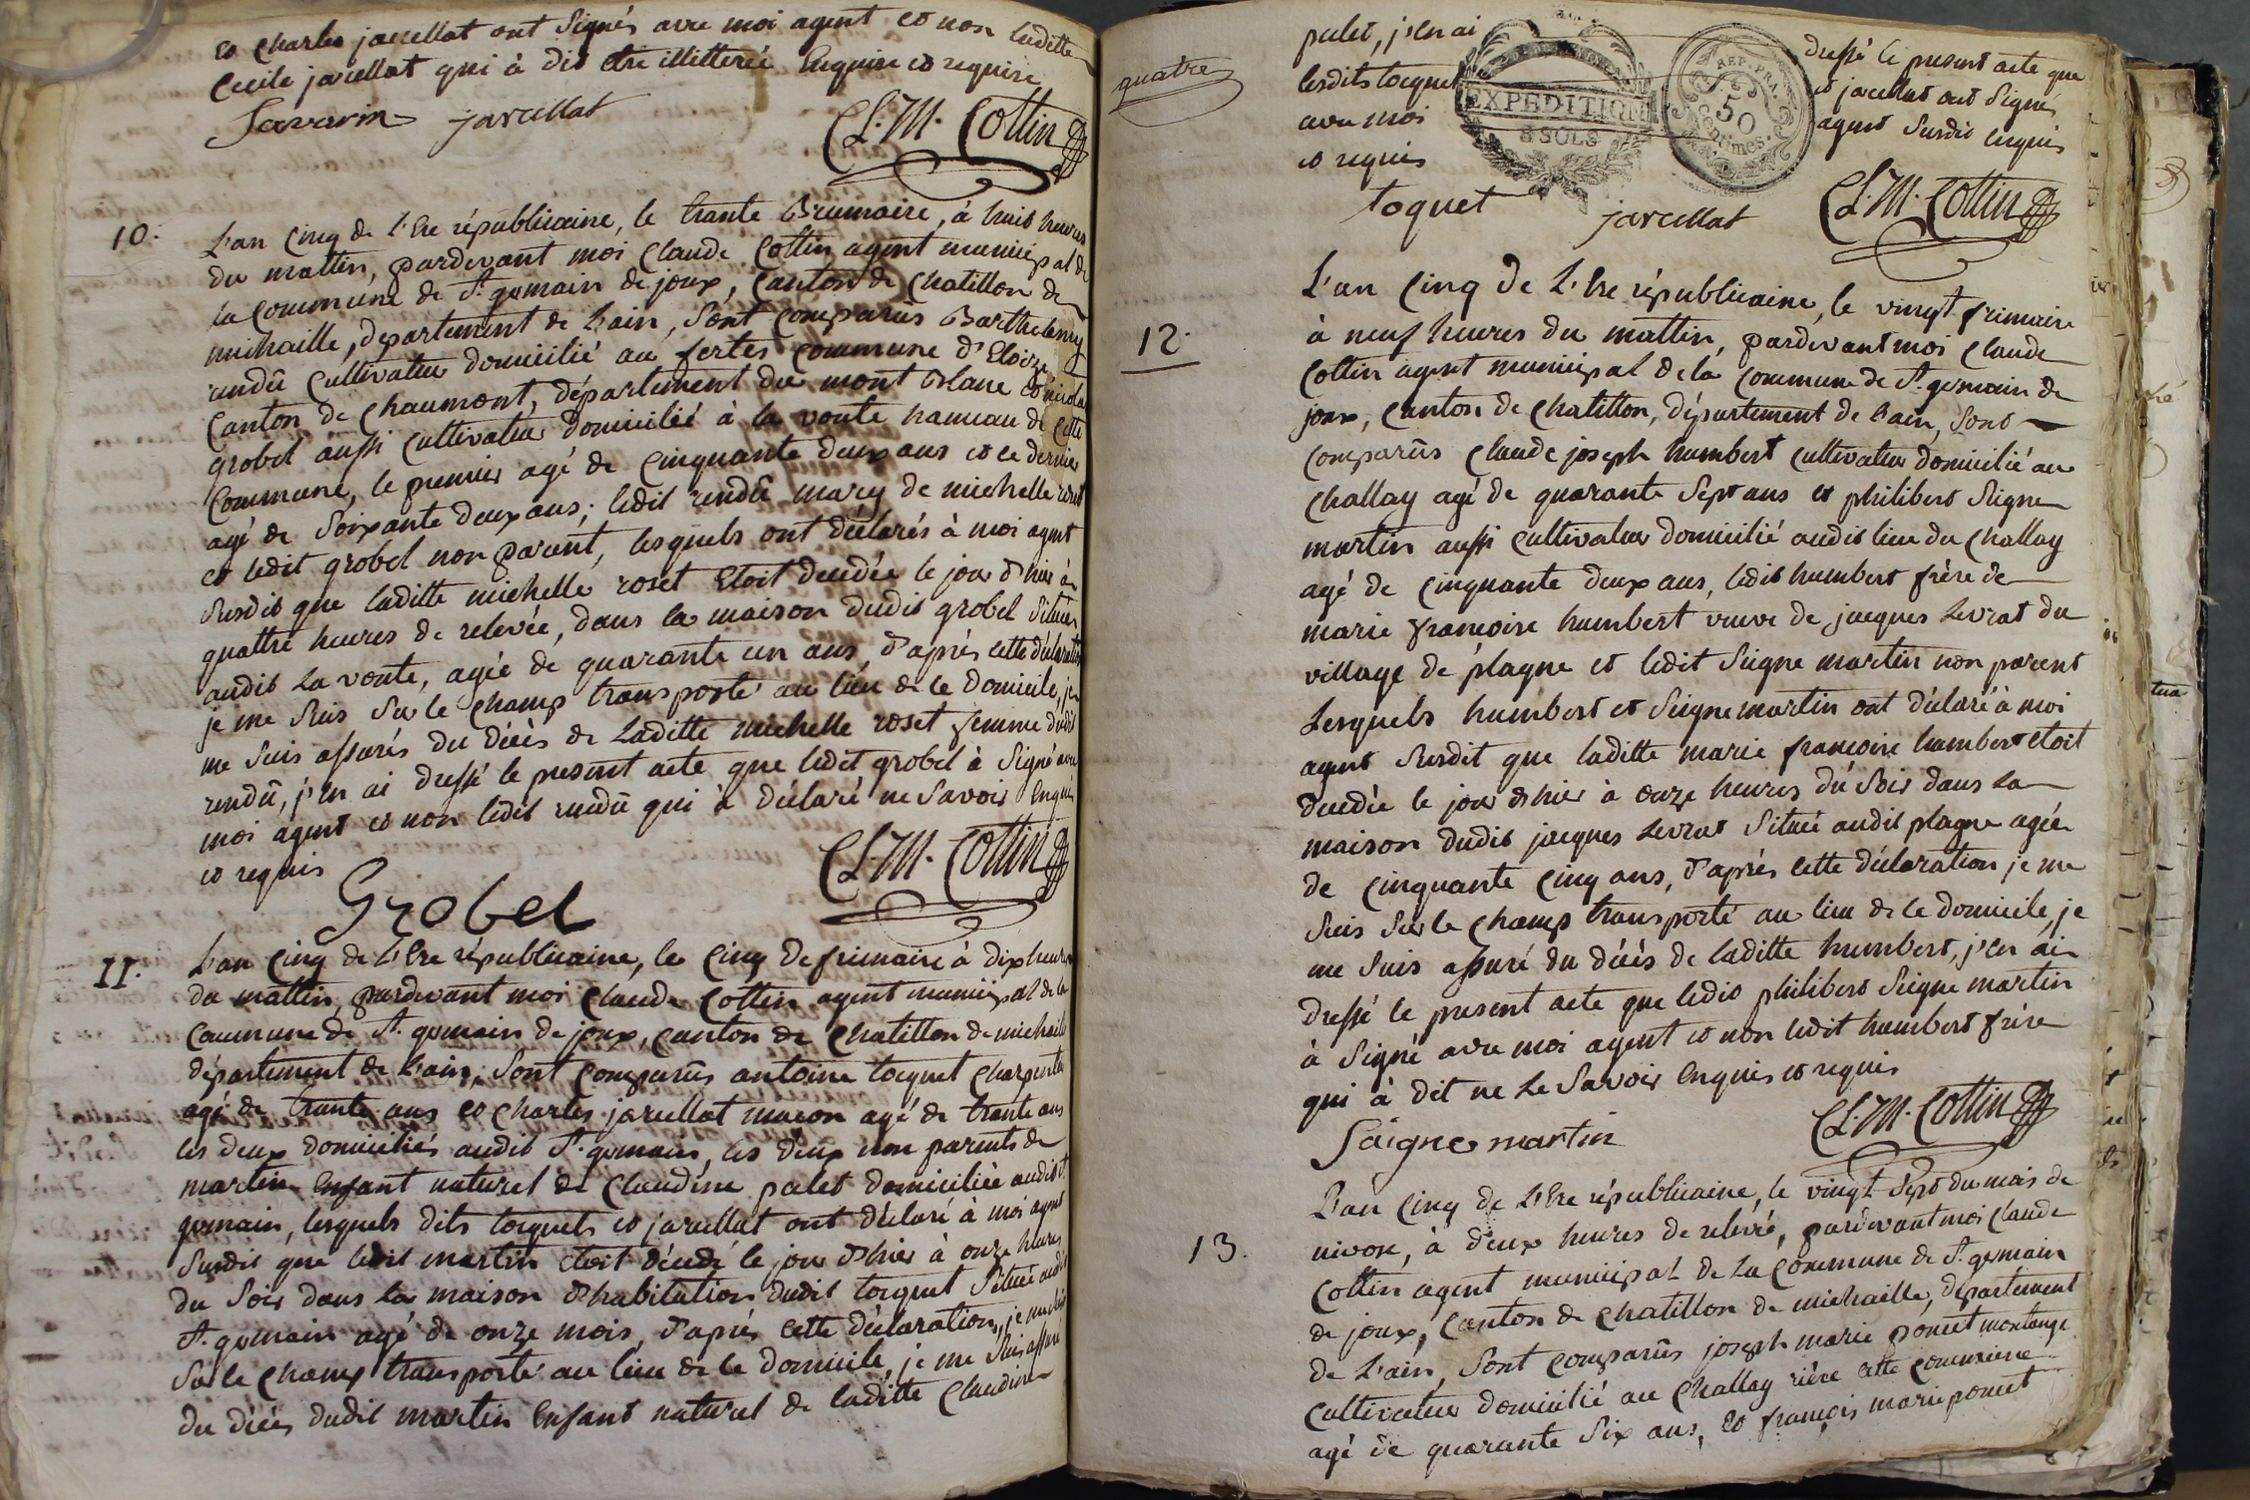 et Charles jarcellat ont Signés avec moi agent et non laditte
Cecile jarcellat qui à dit etre illitterée Enquise et requise
Savarin jarcellat
Cl. M. Cottin
10.
L'an Cinq de L'Ere républicaine, le trante Brumaire, à huit heures
du mattin, pardevant moi Claude Cottin agent municipal de
la Commune de St. germain de joux, Canton de Chatillon de
michaille, département de L'ain, Sont Comparûs Barthelemy
rendû Cultivateur domicilié au fertes Commune d'Eloize
Canton de Chaumont, département du mont Blanc et nicolas
grobel aussi Cultivateur domicilié à la voute hameau de Cette
Commune, le premier agé de Cinquante deux ans et le dernier
agé de Soixante deux ans; ledit rendû mary de michelle roset
et ledit grobel non parent, lesquels ont déclarés à moi agent
Susdit que laditte michelle roset Etoit decedée le jour d'hier à
quattre heures de relevée, dans la maison dudit grobel Située
audit La voute, agée de quarante un ans, d'après cette déclaration
je me Suis Sur le Champ transporté au lieu de ce domicile, je
me Suis assurés du décès de Laditte michelle roset femme dudit
rendû, j'en ai dressé le present acte que ledit grobel à Signé avec
moi agent et non ledit rendû qui à déclaré ne Savoir Enquis
et requis
Grobel
Cl. M. Cottin
11.
L'an Cinq de L'Ere républicaine, le Cinq de frimaire à dix heures
du mattin, pardevant moi Claude Cottin agent municipal de la
Commune de St. germain de joux, Canton de Chatillon de michaille
département de L'ain, Sont Comparûs antoine tocquet Charpentier
agé de trante ans et Charles jarcellat macon agé de trante ans
les deux domiciliés audit St. germain, les deux non parents de
martin Enfant naturel de Claudine palet domiciliée audit St.
germain, lesquels dits tocquets et jarcellat ont déclaré à moi agent
Susdit que ledit martin Etoit décédé le jour d'hier à onze heures
du Soir dans la maison d'habitation dudit tocquet Située audit
St. germain agé de onze mois, d'après cette déclaration, je me Suis
Sur le Champ transporté au lieu de ce domicile, je me Suis assuré
du décès dudit martin Enfant naturel de laditte Claudine
quatre
palet, j'en ai dressé le present acte que
lesdits tocquet et jarcellat ont Signé
avec moi agent Susdit enquis
et requis
EXPEDITION
8 SOLS
REP. FRA.
50
Centimes.
toquet jarcellat Cl. M. Cottin
12.
L'an Cinq de L'Ere républicaine, le vingt frimaire
à neuf heures du mattin, pardevant moi Claude
Cottin agent municipal de la Commune de St. germain de
joux, Canton de Chatillon, département de L'ain, Sont
Comparûs Claude joseph humbert Cultivateur domicilié au
Challay agé de quarante Sept ans et philibert Seigne
martin aussi Cultivateur domicilié audit lieu du Challay
agé de Cinquante deux ans, ledit humbert frère de
marie francoise humbert veuve de jacques Levrat du
village de plagne et ledit Seigne martin non parent
Lesquels humbert et Seigne martin ont déclaré à moi
agent Susdit que laditte marie francoise humbert etoit
decedée le jour d'hier à onze heures du Soir dans La
maison dudit jacques Levrat Située audit plagne agée
de Cinquante Cinq ans, d'après cette déclaration je me
Suis Sur le Champ transporté au lieu de ce domicile, je
me Suis assuré du décès de laditte humbert, j'en ai
dressé le present acte que ledit philibert Seigne martin
à Signé avec moi agent et non ledit humbert frère
qui à dit ne Le Savoir Enquis et requis
Saigne martin
Cl. M. Cottin
13.
L'an Cinq de L'Ere républicaine, le vingt Sept du mois de
nivose, à deux heures de relevée, pardevant moi Claude
Cottin agent municipal de La Commune de St. germain
de joux, Canton de Chatillon de michaille, département
de L'ain, Sont Comparûs joseph marie poncet montange
Cultivateur domicilié au Challay rière cette Commune
agé de quarante Six ans, et françois marie poncet